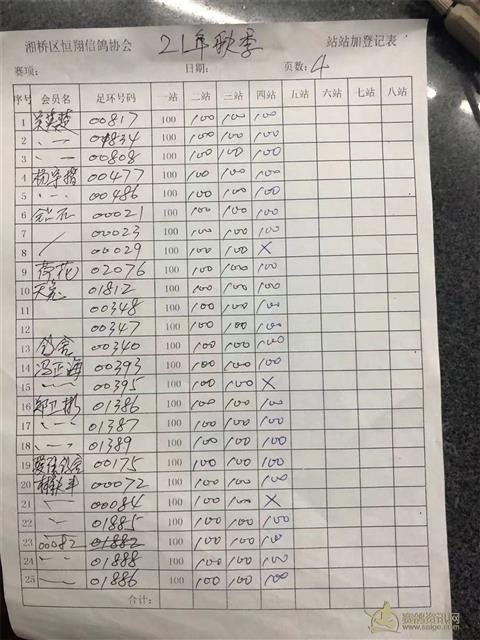 湘桥区恒翔信鸽协会 21年秋季 站站加登记表
赛项: 日期: 页数: 4
序号 会员名 足环号码 一站 二站 三站 四站 五站 六站 七站 八站
1 00817 100 100 100 100
2 〃 01834 100 100 100 100
3 〃 00808 100 100 100 100
4 00477 100 100 100 100
5 〃 00486 100 100 100 100
6 00021 100 100 100 100
7 00023 100 100 100 100
8 00029 100 100 100 X
9 荷花 02076 100 100 100 100
10 01812 100 100 100 100
11 00348 100 100 100 100
12 00347 100 100 100 100
13 00340 100 100 100 100
14 冯正海 00393 100 100 100 100
15 〃 00395 100 100 100 X
16 郑卫彬 01386 100 100 100 100
17 〃 01387 100 100 100 100
18 〃 01389 100 100 100 100
19 00175 100 100 100 100
20 00072 100 100 100 100
21 〃 00084 100 100 100 X
22 〃 01885 100 100 100 100
23 00082 01882 100 100 100 100
24 〃 01888 100 100 100 100
25 〃 01886 100 100 100 100
合计:
赛鸽资讯网
www.saige.com